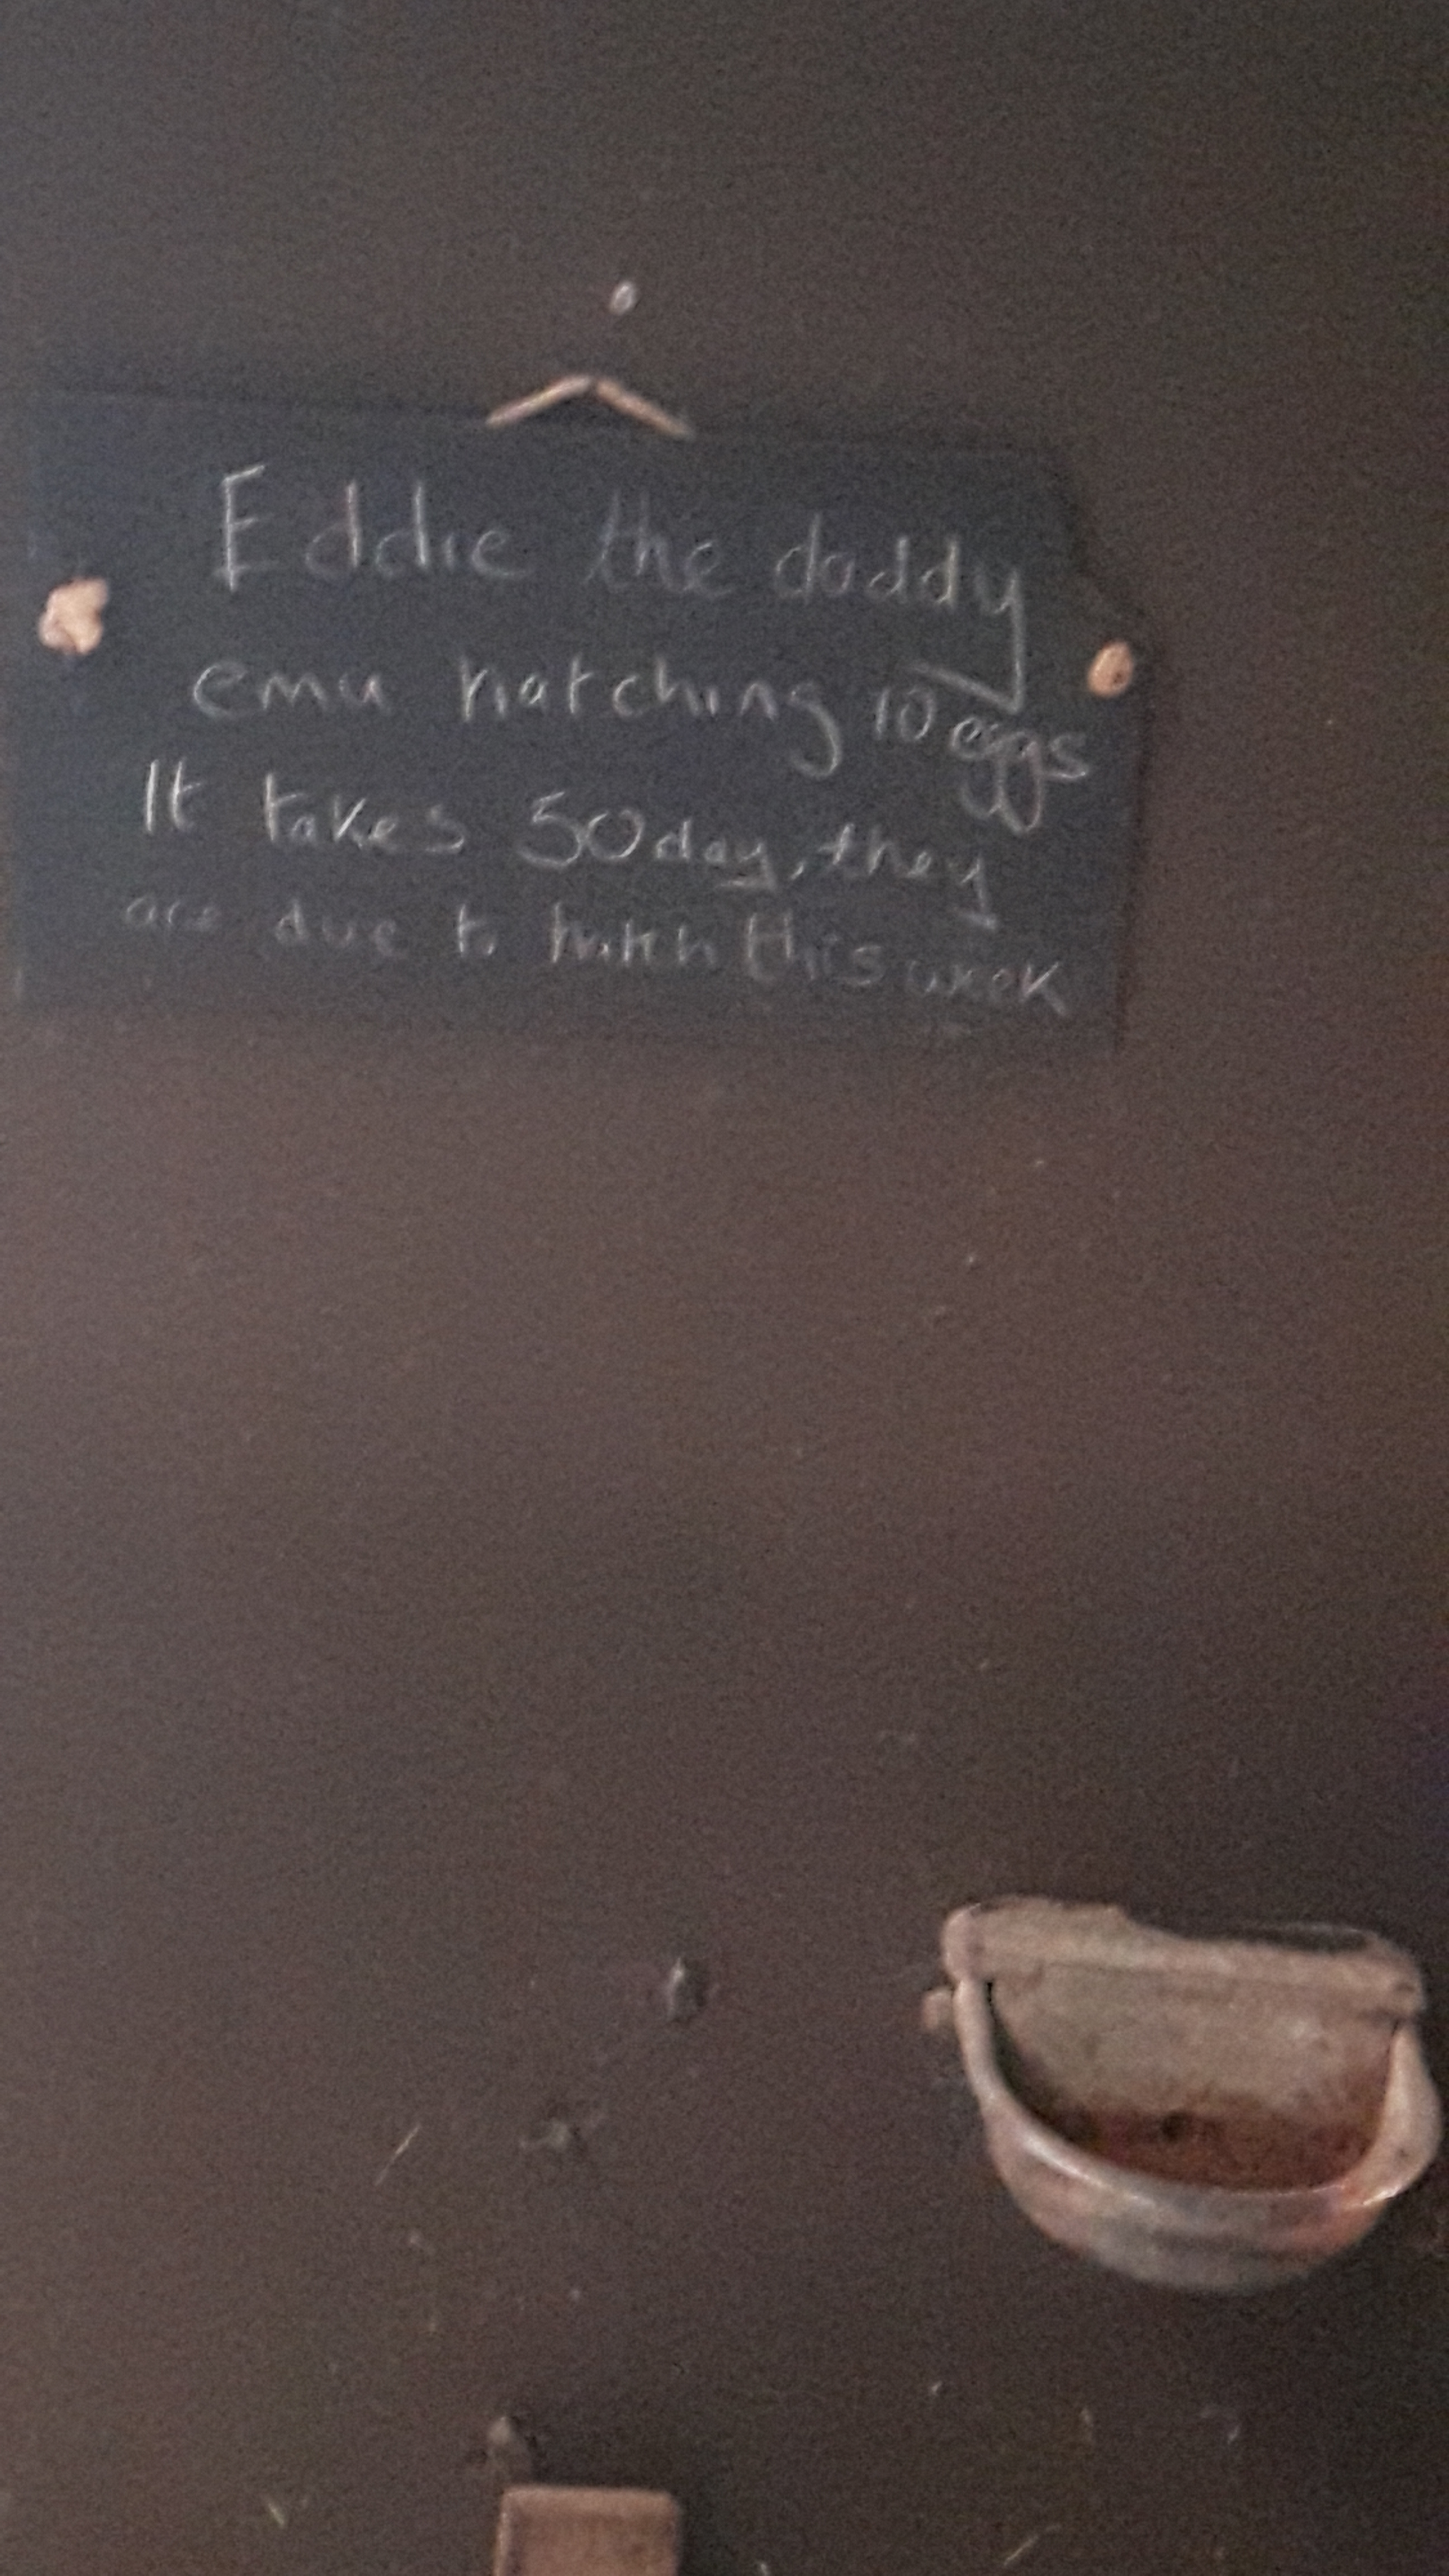 Eddie the daddy
emu hatching 10 eggs
It takes 50 day, they
are due to hatch this week